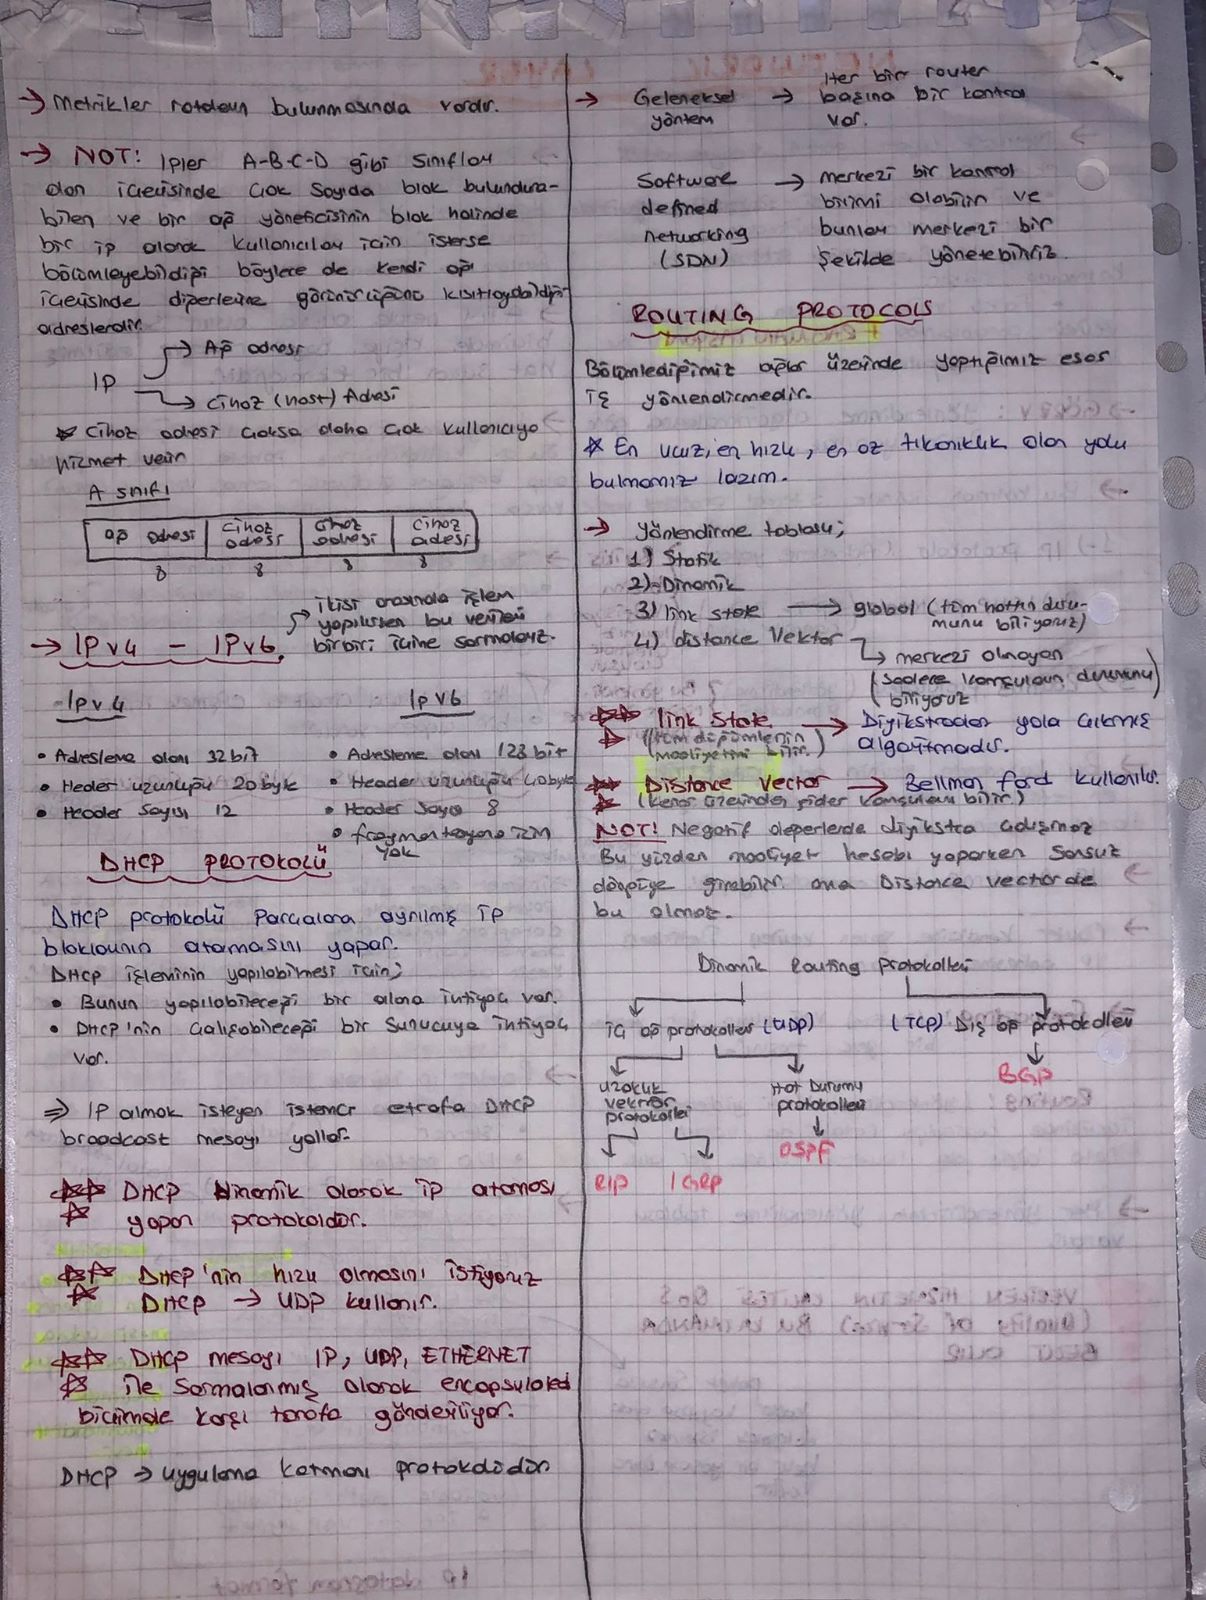 → Metrikler rotaların bulunmasında vardır.
→ NOT: Ipler A-B-C-D gibi sınıfları
olan içerisinde çok sayıda blok bulundura-
bilen ve bir ağ yöneticisinin blok halinde
bir ip alarak kullanıcıları için isterse
bölümleyebildiği böylece de kendi ağı
içerisinde diğerlerine görünürlüğünü kısıtlayabildiği
adreslerdir.
IP
→ Ağ adresi
→ Cihaz (host) Adresi
★ Cihaz adresi çoksa daha çok kullanıcıya
hizmet verir
A sınıfı
ağ adresi | cihaz adresi | cihaz adresi | cihaz adresi
8 8 8 8
→ IPv4 - IPv6
→ ikisi arasında işlem
yapılırken bu verileri
birbiri içine sarmalarız.
Ipv4
• Adresleme alanı 32 bit
• Heder uzunluğu 20 byte
• Header Sayısı 12
Ipv6
• Adresleme alanı 128 bit
• Header uzunluğu 40 byte
• Header Sayısı 8
• fragmentasyona izin
yok
DHCP PROTOKOLÜ
DHCP protokolü Parçalara ayrılmış ip
bloklarının atamasını yapar.
DHCP işleminin yapılabilmesi için;
• Bunun yapılabileceği bir alana ihtiyaç var.
• DHCP'nin çalışabileceği bir Sunucuya ihtiyaç
var.
⇒ IP almak isteyen istemci etrafa DHCP
broadcast mesajı yollar.
★★★ DHCP Dinamik olarak ip ataması
yapan protokoldür.
★★★ DHCP'nin hızlı olmasını istiyoruz
DHCP → UDP kullanır.
★★★ DHCP mesajı IP, UDP, ETHERNET
ile Sarmalanmış olarak encapsulated
biçimde karşı tarafa gönderiliyor.
DHCP → uygulama katmanı protokolüdür
→ Geleneksel
yöntem
→ Her bir router
başına bir kontrol
var.
Software
defined
networking
(SDN)
→ merkezi bir kontrol
birimi olabilir ve
bunları merkezi bir
Şekilde yönetebiliriz.
ROUTING PROTOCOLS
Bölümlediğimiz ağlar üzerinde yaptığımız esas
iş yönlendirmedir.
★ En ucuz, en hızlı, en az tıkanıklık olan yolu
bulmamız lazım.
→ Yönlendirme tablosu;
1) Statik
2) Dinamik
3) link state → global (tüm hattın duru-
munu biliyoruz)
4) distance Vektor
→ merkezi olmayan
(Sadece komşuların durumunu
biliyoruz)
★★★ link State → Diyikstradan yola çıkmış
algoritmadır.
(tüm düğümlerin
maaliyetini bilir.)
★★★ Distance vector → Bellman ford kullanılır.
(kenar üzerinden gider komşuları bilir.)
NOT! Negatif değerlerde diyikstra çalışmaz
Bu yüzden maaliyet hesabı yaparken Sonsuz
döngüye girebilir ama Distance vectorde
bu olmaz.
Dinamik Routing protokolleri
iç ağ protokolleri (UDP)
(TCP) Dış ağ protokolleri
uzaklık
vektör
protokolleri
Hat Durumu
protokolleri
BGP
OSPF
RIP IGRP